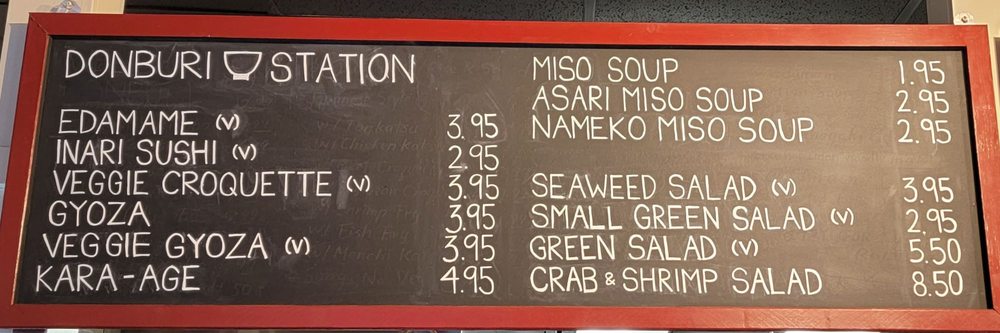 DONBURI STATION
EDAMAME (V) 3.95
INARI SUSHI (V) 2.95
VEGGIE CROQUETTE (V) 3.95
GYOZA 3.95
VEGGIE GYOZA (V) 3.95
KARA-AGE 4.95
MISO SOUP 1.95
ASARI MISO SOUP 2.95
NAMEKO MISO SOUP 2.95
SEAWEED SALAD (V) 3.95
SMALL GREEN SALAD (V) 2.95
GREEN SALAD (V) 5.50
CRAB & SHRIMP SALAD 8.50